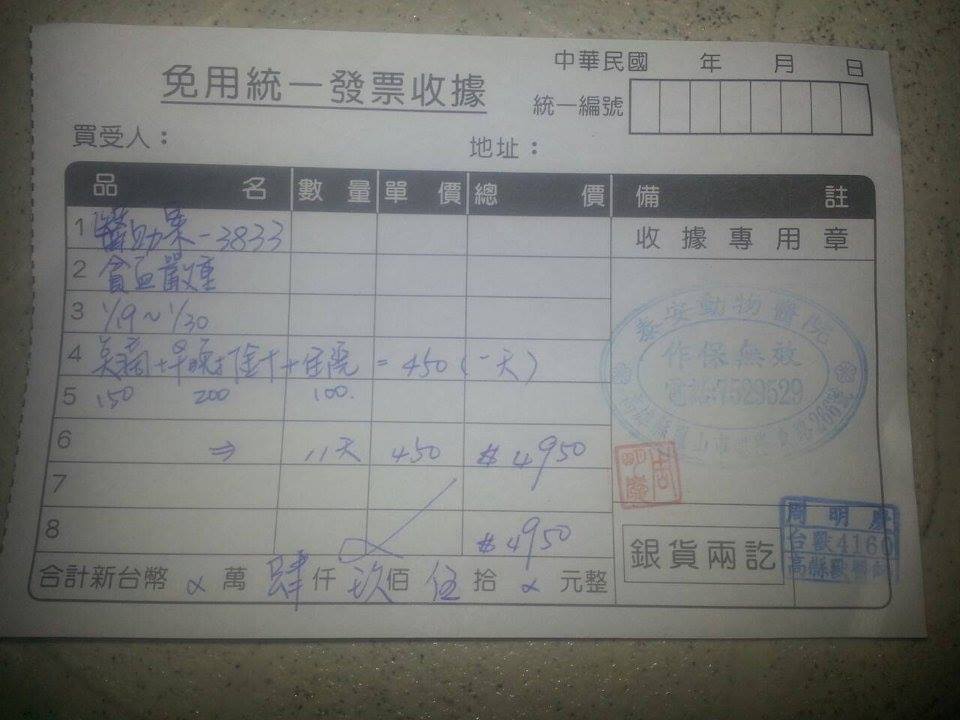 中華民國 年 月 日
免用統一發票收據
統一編號
買受人： 地址：
品名 數量 單價 總價 備註
收據專用章
1 醫助案-3833
2 貧血嚴重
3 1/19~1/30
4 +早晚打針+住院=450(一天)
5 150 200 100
6 ⇒ 11天 450 $4950
7
8 $4950
合計新台幣 萬 肆 仟 玖 佰 伍 拾 元整
泰安動物醫院
作保無效
電話:7529529
銀貨兩訖
周明慶
台獸4160